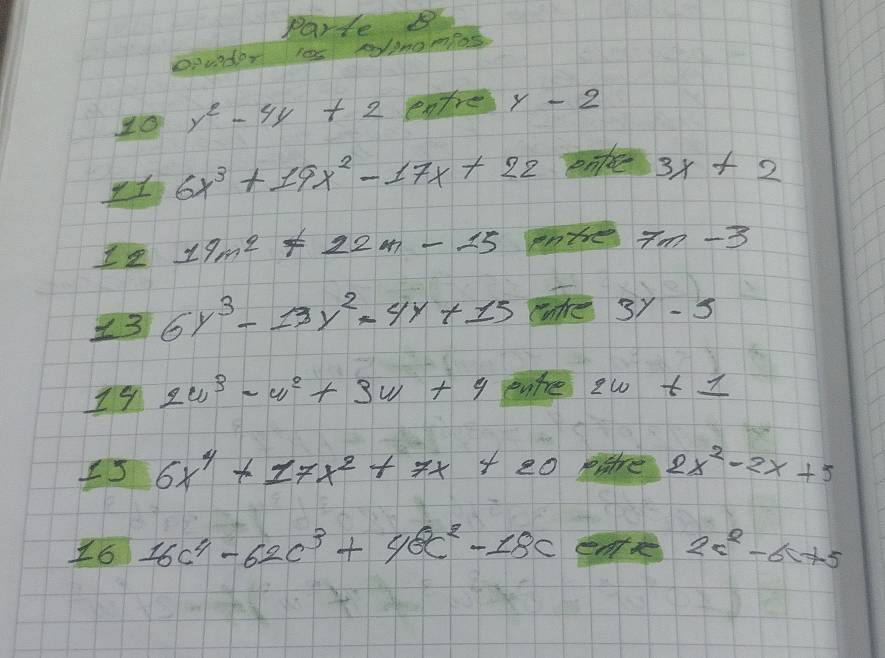 Parte B
Dividir los polinomios
10 y² - 4y + 2 entre y - 2
11 6x³ + 19x² - 17x + 22 entre 3x + 2
12 19m² + 22m - 15 entre 7m - 3
13 6y³ - 13y² - 4y + 15 entre 3y - 5
14 2w³ - w² + 3w + 4 entre 2w + 1
15 6x⁴ + 17x² + 7x + 20 entre 2x² - 2x + 5
16 16c⁴ - 62c³ + 46c² - 18c entre 2c² - 6c + 5